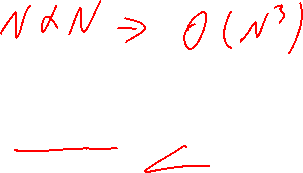 N × N ⇒ O(N³)